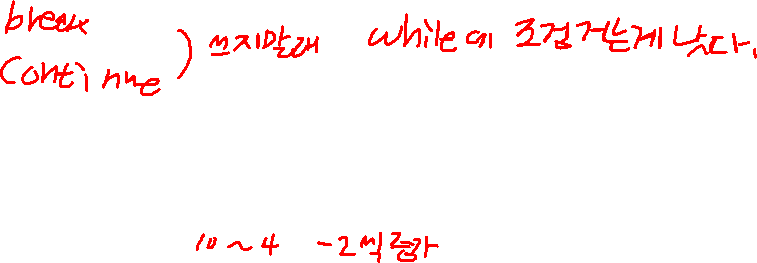 break
continue ) 쓰지말래 while에 조검거는게 낫다.
10 ~ 4 -2씩 증가